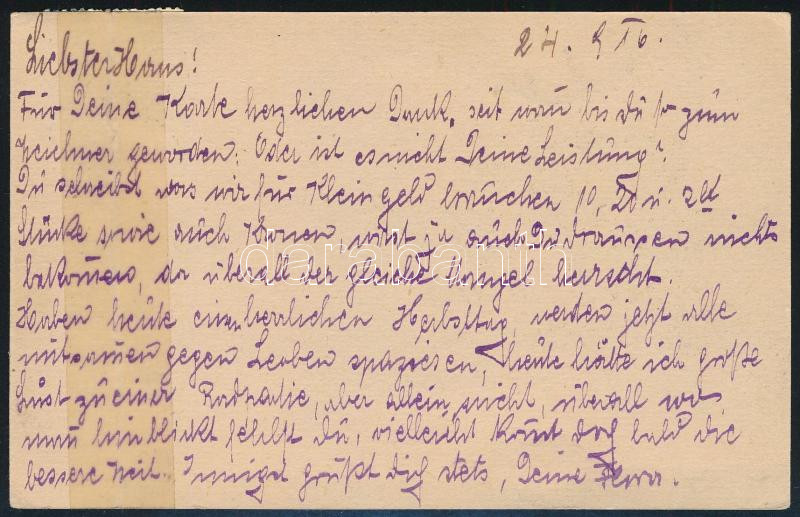 24. 9 16.
Liebster Hans!
Für Deine Karte herzlichen Dank, seit wan bis du so zum
Zeichner geworden. Oder ist es nicht Deine Leistung?
Du schreibst was wir für Kleingeld brauchen 10, 20 u. 2
Stücke sowie auch Kronen, wirst ja auch Du draußen nichts
bekomen, da überall der gleiche Mangel herscht.
Haben heute einen herrlichen Herbsttag, werden jetzt alle
mitsamen gegen Leoben spazieren, heute hätte ich große
Lust zu einer Radpartie, aber allein nicht, überall wo
man hinblickt fehlst du, vielleicht komt doch bald die
bessere Zeit. Innigst grüßt dich stets, Deine
darabanth